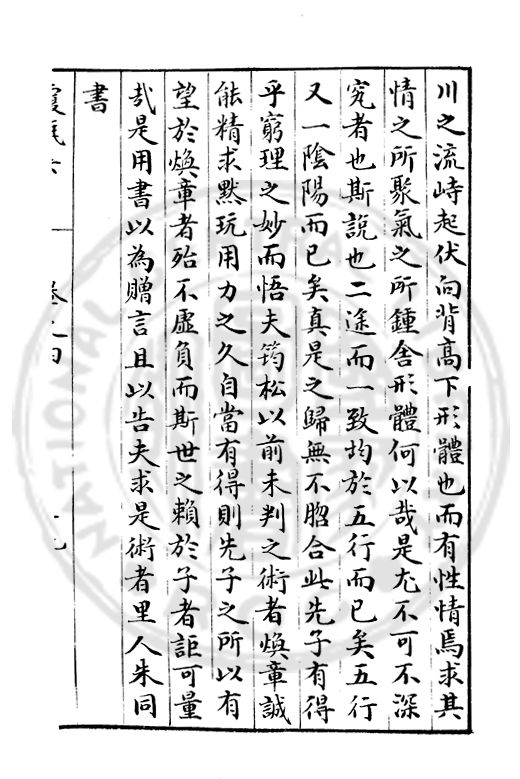 川之流峙起伏向背高下形體也而有性情焉求其
情之所聚氣之所鍾舍形體何以哉是尤不可不深
究者也斯說也二途而一致均於五行而已矣五行
又一陰陽而已矣真是之歸無不脗合此先子有得
乎窮理之妙而悟夫筠松以前未判之術者煥章誠
能精求默玩用力之久自當有得則先子之所以有
望於煥章者殆不虛負而斯世之賴於子者詎可量
哉是用書以為贈言且以告夫求是術者里人朱同
書
NATIONAL